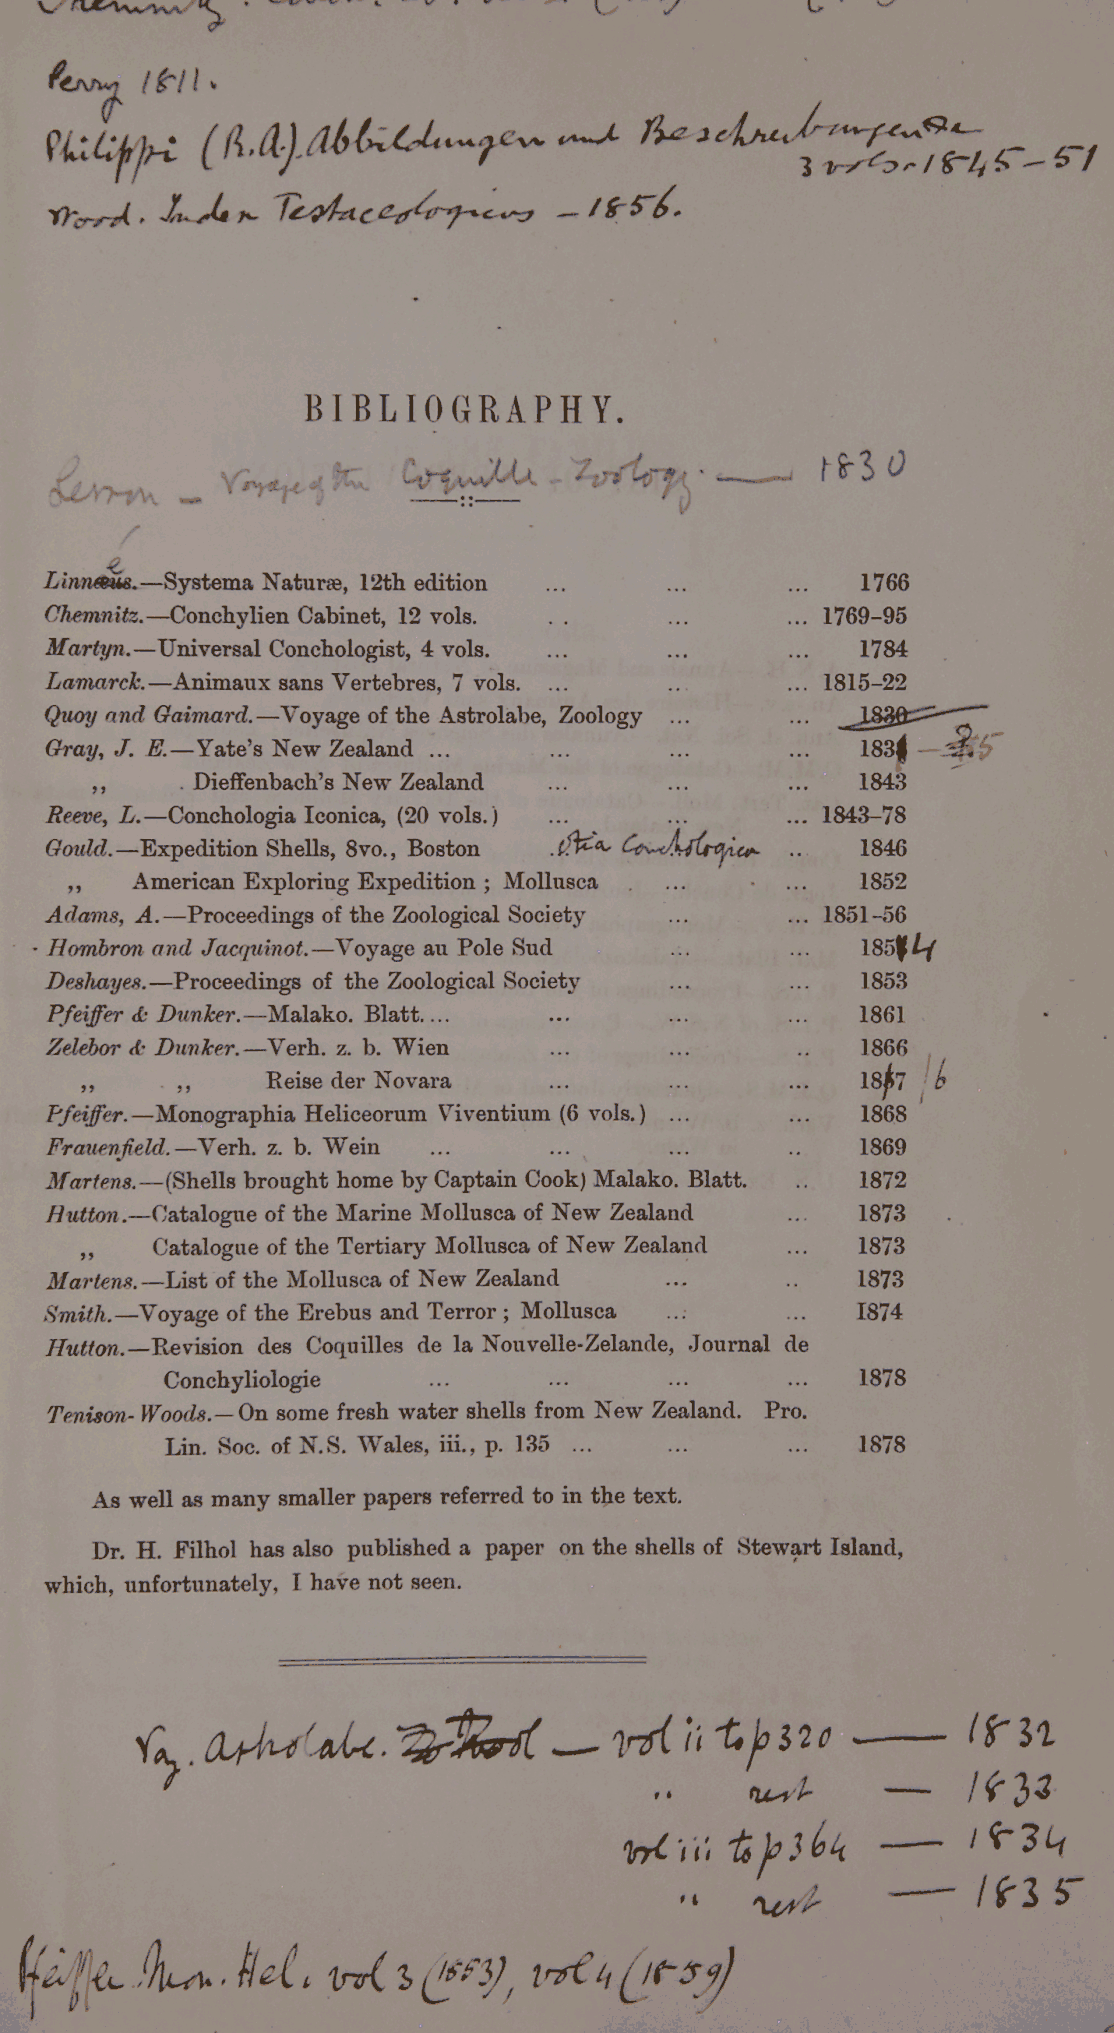 Perry 1811.
Philippi (R.A.) Abbildungen und Beschreibungen
3 vols. 1845-51
Wood. Index Testaceologicus - 1856.
BIBLIOGRAPHY.
Lesson - Voyage of the Coquille - Zoology. — 1830
é
Linnæus.—Systema Naturæ, 12th edition ... ... ... 1766
Chemnitz.—Conchylien Cabinet, 12 vols. .. ... ... 1769-95
Martyn.—Universal Conchologist, 4 vols. ... ... ... 1784
Lamarck.—Animaux sans Vertebres, 7 vols. ... ... ... 1815-22
Quoy and Gaimard.—Voyage of the Astrolabe, Zoology ... ... 1830
Gray, J. E.—Yate's New Zealand ... ... ... ... 183
,, Dieffenbach's New Zealand ... ... ... 1843
Reeve, L.—Conchologia Iconica, (20 vols.) ... ... ... 1843-78
Gould.—Expedition Shells, 8vo., Boston Otia Conchologica .. 1846
,, American Exploring Expedition ; Mollusca . ... ... 1852
Adams, A.—Proceedings of the Zoological Society ... ... 1851-56
Hombron and Jacquinot.—Voyage au Pole Sud ... ... 1854
Deshayes.—Proceedings of the Zoological Society ... ... 1853
Pfeiffer & Dunker.—Malako. Blatt.... ... ... ... 1861
Zelebor & Dunker.—Verh. z. b. Wien ... ... .. 1866
,, ,, Reise der Novara ... ... ... 18 7 /6
Pfeiffer.—Monographia Heliceorum Viventium (6 vols.) ... ... 1868
Frauenfield.—Verh. z. b. Wein ... ... ... .. 1869
Martens.—(Shells brought home by Captain Cook) Malako. Blatt. .. 1872
Hutton.—Catalogue of the Marine Mollusca of New Zealand ... 1873
,, Catalogue of the Tertiary Mollusca of New Zealand ... 1873
Martens.—List of the Mollusca of New Zealand ... .. 1873
Smith.—Voyage of the Erebus and Terror ; Mollusca ... ... 1874
Hutton.—Revision des Coquilles de la Nouvelle-Zelande, Journal de
Conchyliologie ... ... ... ... 1878
Tenison-Woods.—On some fresh water shells from New Zealand. Pro.
Lin. Soc. of N.S. Wales, iii., p. 135 ... ... ... 1878
As well as many smaller papers referred to in the text.
Dr. H. Filhol has also published a paper on the shells of Stewart Island,
which, unfortunately, I have not seen.
Voy. Astrolabe. — vol ii to p 320 — 1832
" rest — 1833
vol iii to p 364 — 1834
" rest — 1835
Pfeiffer Mon. Hel. vol 3 (1853), vol 4 (1859)